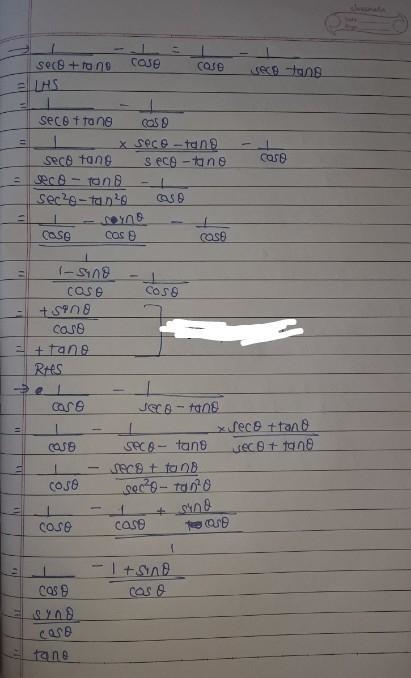 classmate
Date
Page
→ 1/(secθ + tanθ) - 1/cosθ = 1/cosθ - 1/(secθ - tanθ)
= LHS
= 1/(secθ + tanθ) - 1/cosθ
= 1/(secθ tanθ) × (secθ - tanθ)/(secθ - tanθ) - 1/cosθ
= (secθ - tanθ)/(sec²θ - tan²θ) - 1/cosθ
= (1/cosθ - sinθ/cosθ)/1 - 1/cosθ
= (1 - sinθ)/cosθ - 1/cosθ
= + sinθ/cosθ
= + tanθ
RHS
→ 1/cosθ - 1/(secθ - tanθ)
= 1/cosθ - 1/(secθ - tanθ) × (secθ + tanθ)/(secθ + tanθ)
= 1/cosθ - (secθ + tanθ)/(sec²θ - tan²θ)
= 1/cosθ - (1/cosθ + sinθ/cosθ)/1
= 1/cosθ - (1 + sinθ)/cosθ
= sinθ/cosθ
= tanθ